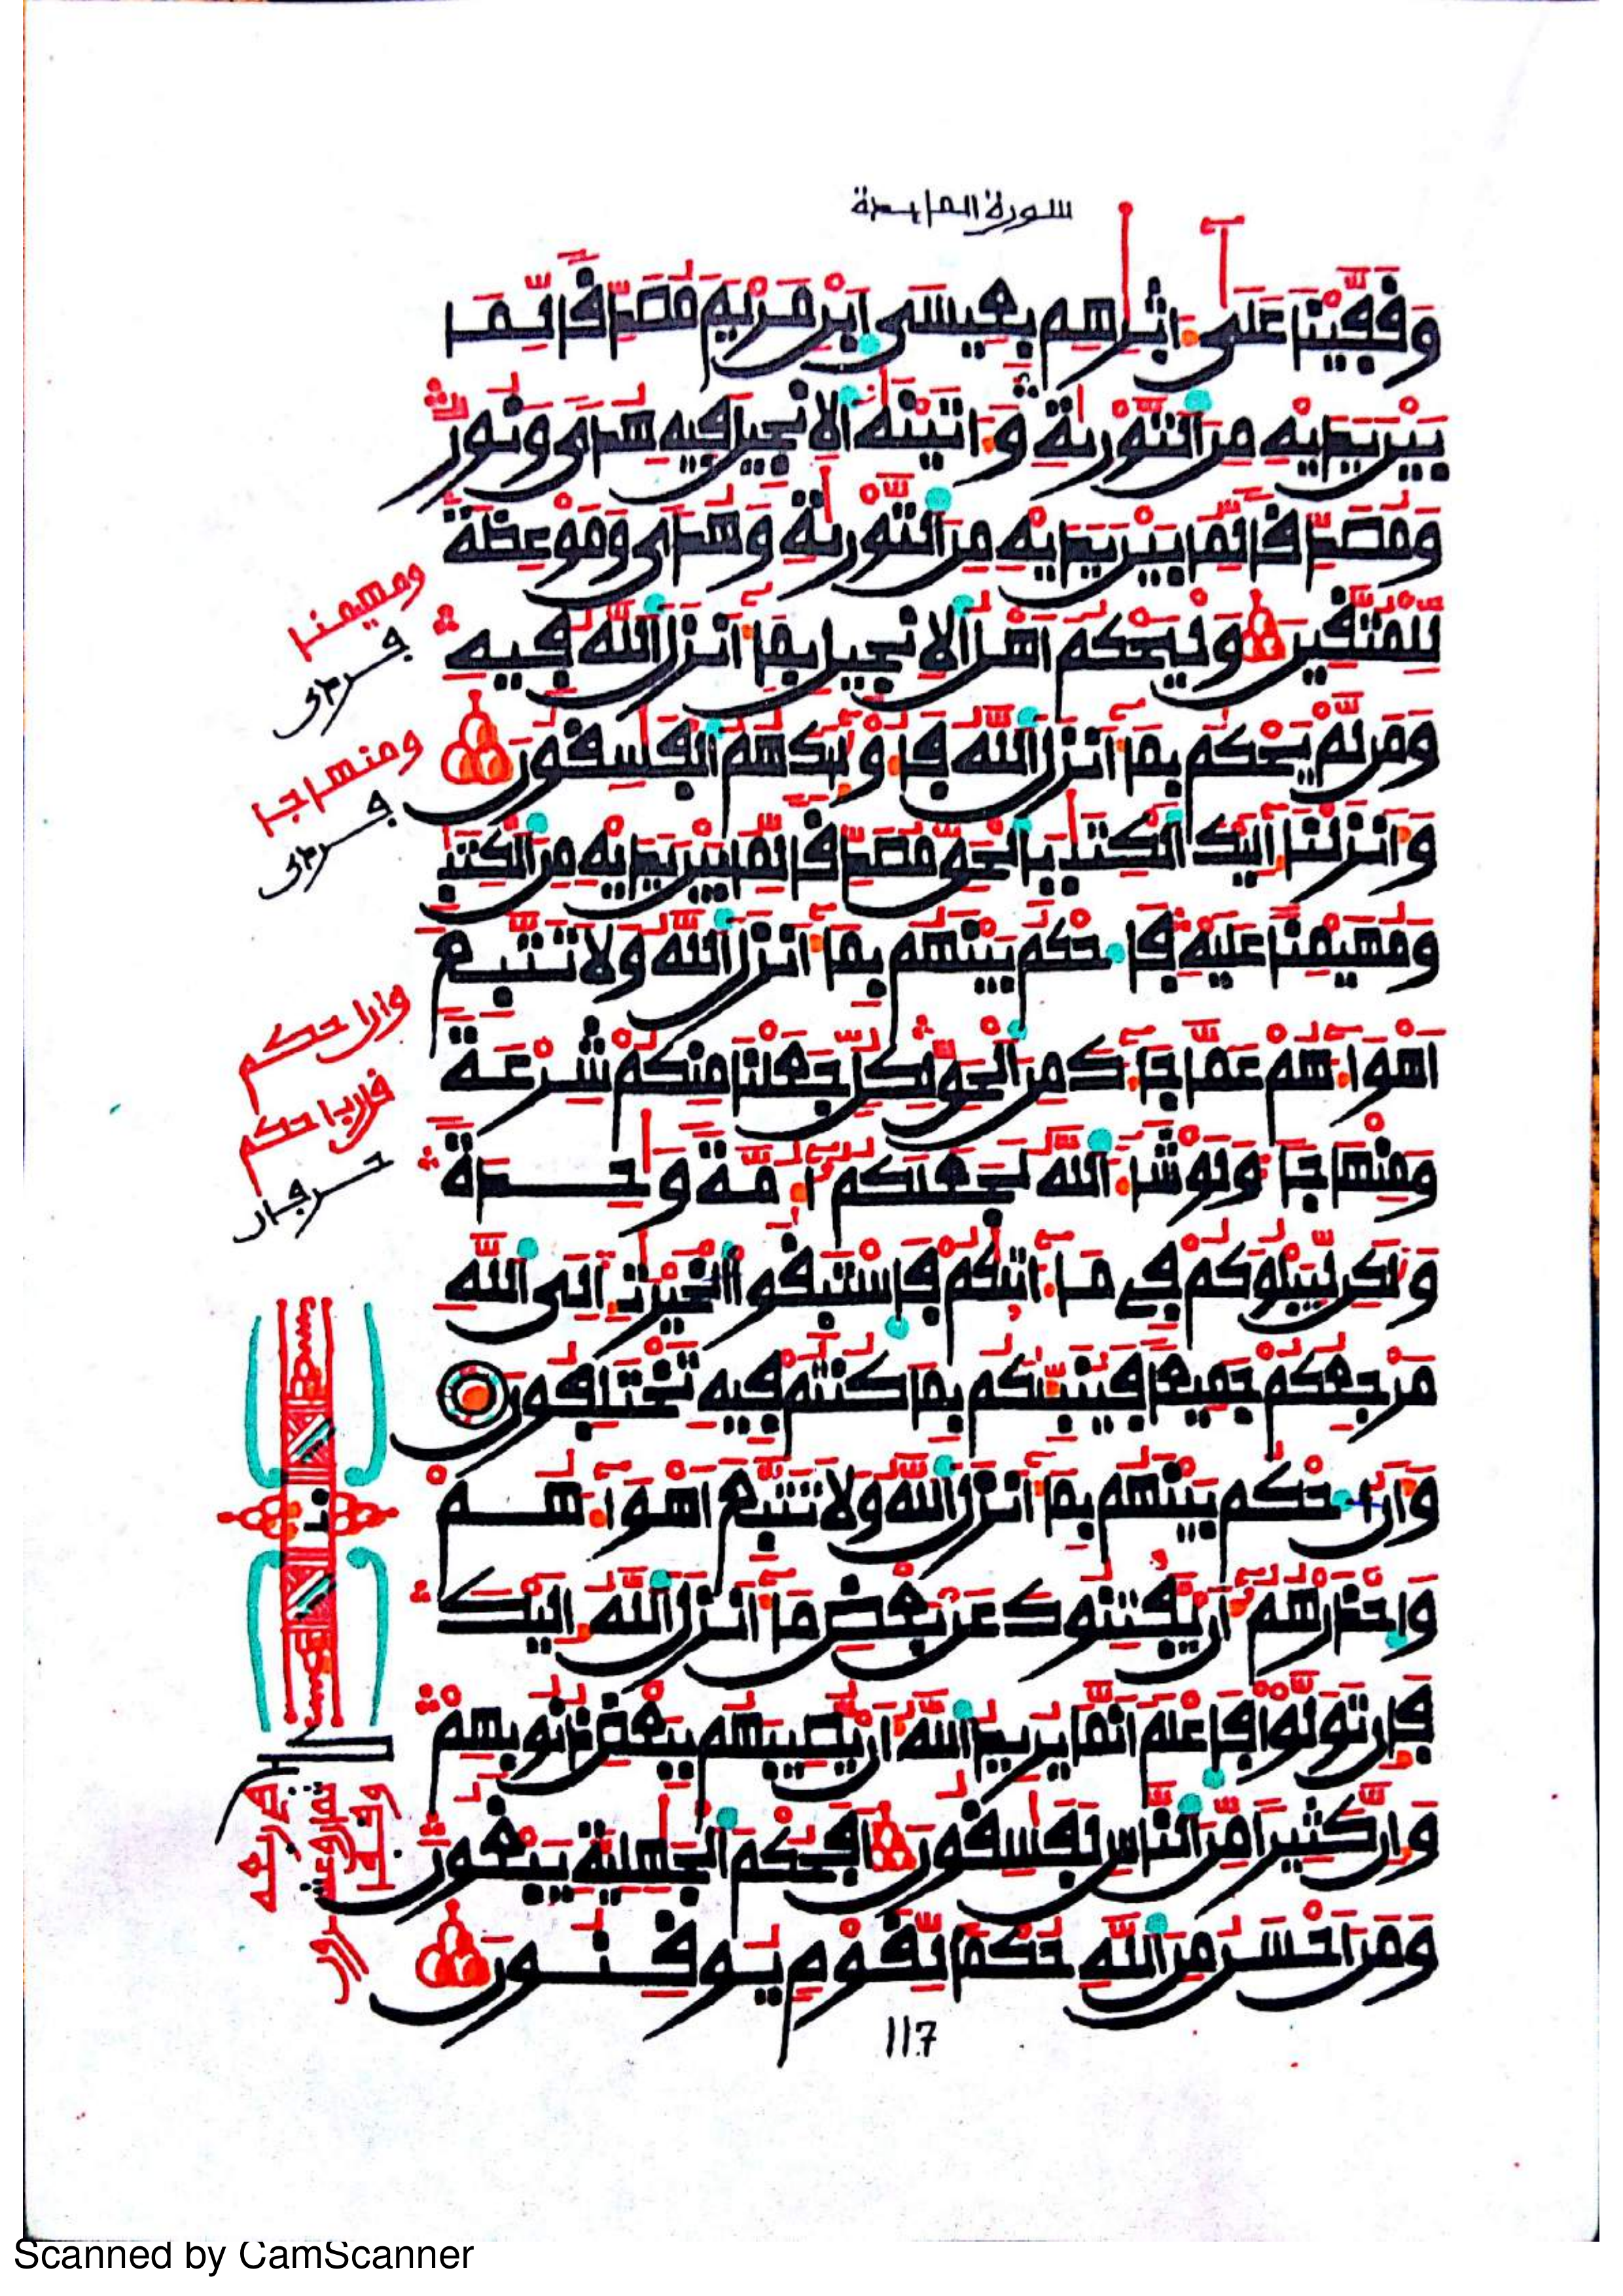 سورة المايدة
وَقَفَّيْنَا عَلَىٰٓ ءَاثٰرِهِم بِعِيسَى اَبْنِ مَرْيَمَ مُصَدِّقاً لِّمَا
بَيْنَ يَدَيْهِ مِنَ اَلتَّوْرَيٰةِ وَءَاتَيْنَٰهُ اُلِانجِيلَ فِيهِ هُدىً وَنُورٌ
وَمُصَدِّقاً لِّمَا بَيْنَ يَدَيْهِ مِنَ اَلتَّوْرَيٰةِ وَهُدىً وَمَوْعِظَةً
لِّلْمُتَّقِينَ وَلْيَحْكُمَ اَهْلُ اُلِانجِيلِ بِمَآ أَنزَلَ اَللَّهُ فِيهِ
وَمَن لَّمْ يَحْكُم بِمَآ أَنزَلَ اَللَّهُ فَأُوْلَٰٓئِكَ هُمُ اُلْفَٰسِقُونَ
وَأَنزَلْنَآ إِلَيْكَ اَلْكِتَٰبَ بِالْحَقِّ مُصَدِّقاً لِّمَا بَيْنَ يَدَيْهِ مِنَ اَلْكِتَٰبِ
وَمُهَيْمِناً عَلَيْهِ فَاحْكُم بَيْنَهُم بِمَآ أَنزَلَ اَللَّهُ وَلَا تَتَّبِعَ
اَهْوَآءَهُمْ عَمَّا جَآءَكَ مِنَ اَلْحَقِّ لِكُلٍّ جَعَلْنَا مِنكُمْ شِرْعَةً
وَمِنْهَاجاً وَلَوْ شَآءَ اَللَّهُ لَجَعَلَكُمُ أُمَّةً وَٰحِدَةً
وَلَٰكِن لِّيَبْلُوَكُمْ فِي مَآ ءَاتَيٰكُمْ فَاسْتَبِقُواْ اُلْخَيْرَٰتِ إِلَى اَللَّهِ
مَرْجِعُكُمْ جَمِيعاً فَيُنَبِّئُكُم بِمَا كُنتُمْ فِيهِ تَخْتَلِفُونَ
وَأَنُ اُحْكُم بَيْنَهُم بِمَآ أَنزَلَ اَللَّهُ وَلَا تَتَّبِعَ اَهْوَآءَهُمْ
وَاحْذَرْهُمُ أَن يَّفْتِنُوكَ عَن بَعْضِ مَآ أَنزَلَ اَللَّهُ إِلَيْكَ
فَإِن تَوَلَّوْاْ فَاعْلَمَ اَنَّمَا يُرِيدُ اُللَّهُ أَن يُّصِيبَهُم بِبَعْضِ ذُنُوبِهِمْ
وَإِنَّ كَثِيراً مِّنَ اَلنَّاسِ لَفَٰسِقُونَ أَفَحُكْمَ اَلْجَٰهِلِيَّةِ يَبْغُونَ
وَمَنَ اَحْسَنُ مِنَ اَللَّهِ حُكْماً لِّقَوْمٍ يُوقِنُونَ
117
ومهيمنا
ومنهاجا
وان احكم
Scanned by CamScanner